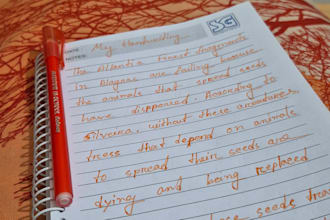 SSG
DATE
My Handwriting
NOTES:
The Atlantic Forest fragments
in Alagoas are failing because
the animals that spread seeds
have disppeared. According to
Silveira, without these
trees that depend on animals
to spread their seeds are
dying and being replaced
seeds trees